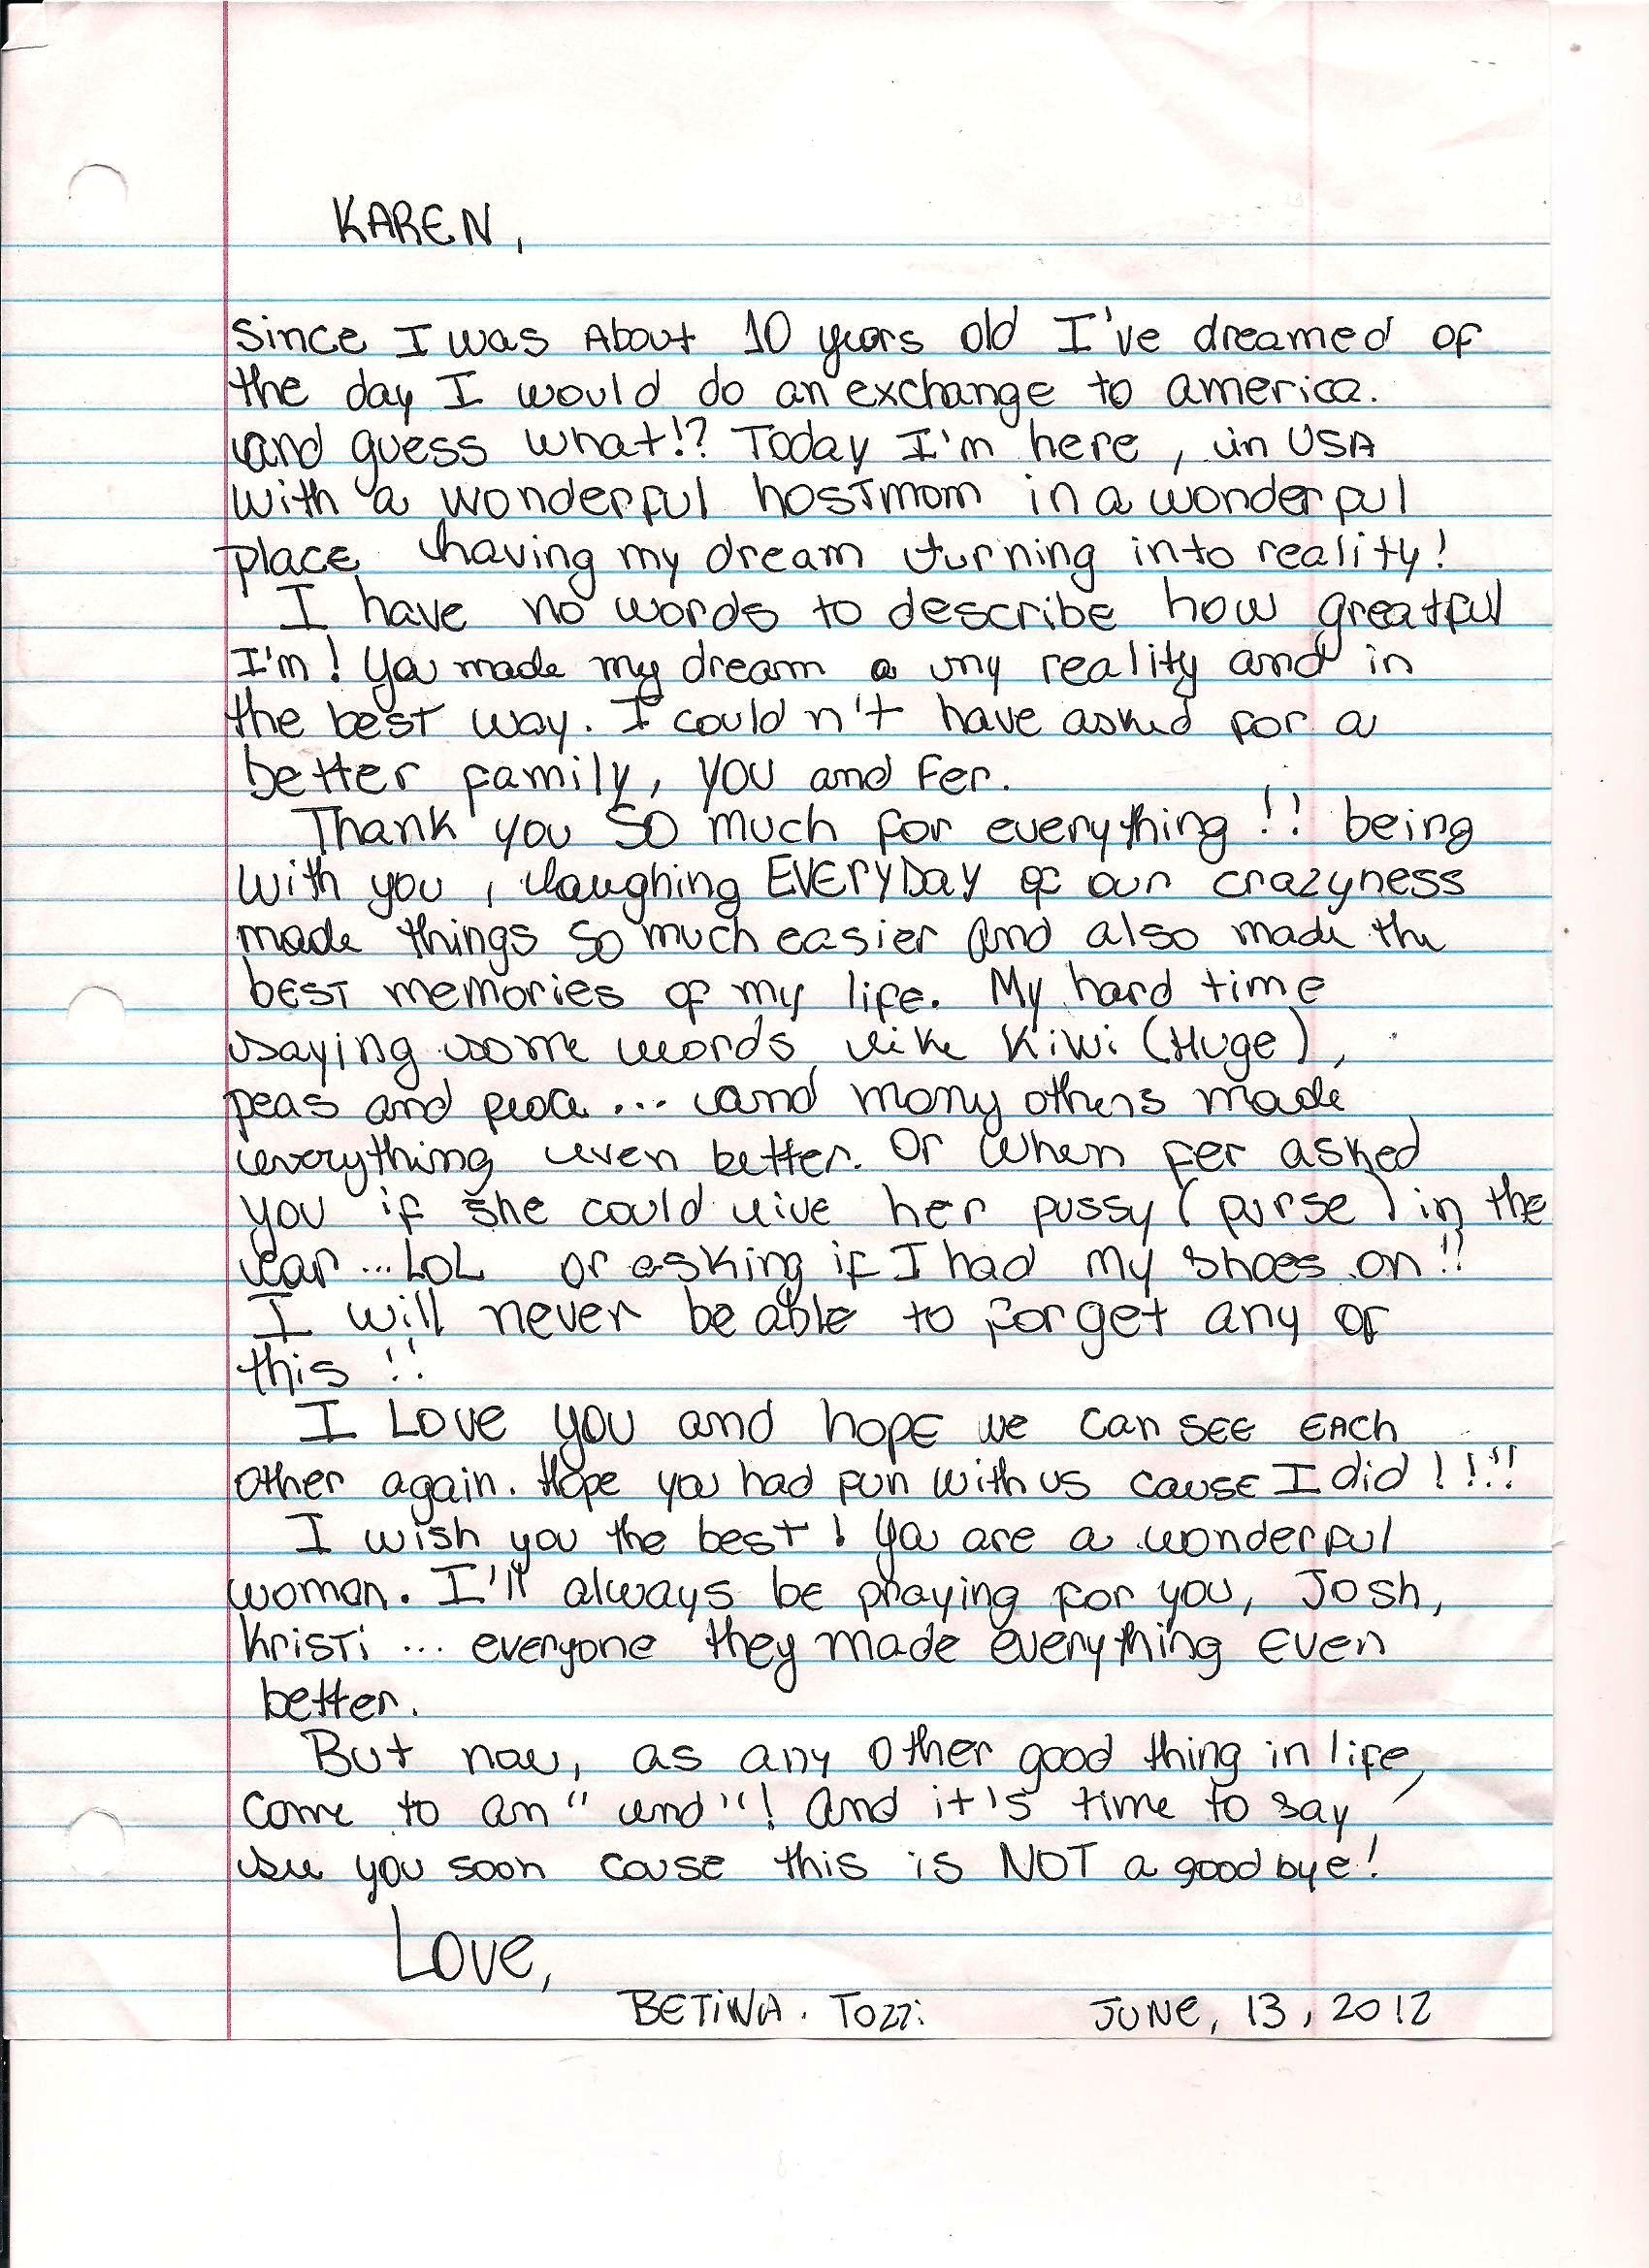 KAREN,
Since I was About 10 years old I've dreamed of
the day I would do an exchange to america.
and guess what!? Today I'm here, in USA
with a wonderful hostmom in a wonderful
place having my dream turning into reality!
I have no words to describe how greatful
I'm! You made my dream a my reality and in
the best way. I couldn't have asked for a
better family, you and Fer.
Thank you SO much for everything!! being
with you, laughing EVERYDAY of our crazyness
made things so much easier and also made the
bEST memories of my life. My hard time
saying some words like Kiwi (Huge),
peas and ... and many others made
everything even better. Or when Fer asked
you if she could live her pussy (purse) in the
car... LOL or asking if I had my shoes on!!
I will never be able to forget any of
this!!
I Love you and hopE we can SEE EACh
other again. Hope you had fun with us causE I did!!!!
I wish you the best! You are a wonderful
woman. I'll always be praying for you, Josh,
Kristi ... everyone they made everything Even
better.
But now, as any other good thing in life,
come to an "end"! And it's time to say
see you soon cause this is NOT a goodbye!
Love,
BETiNA. Tozzi JUNE, 13, 2012